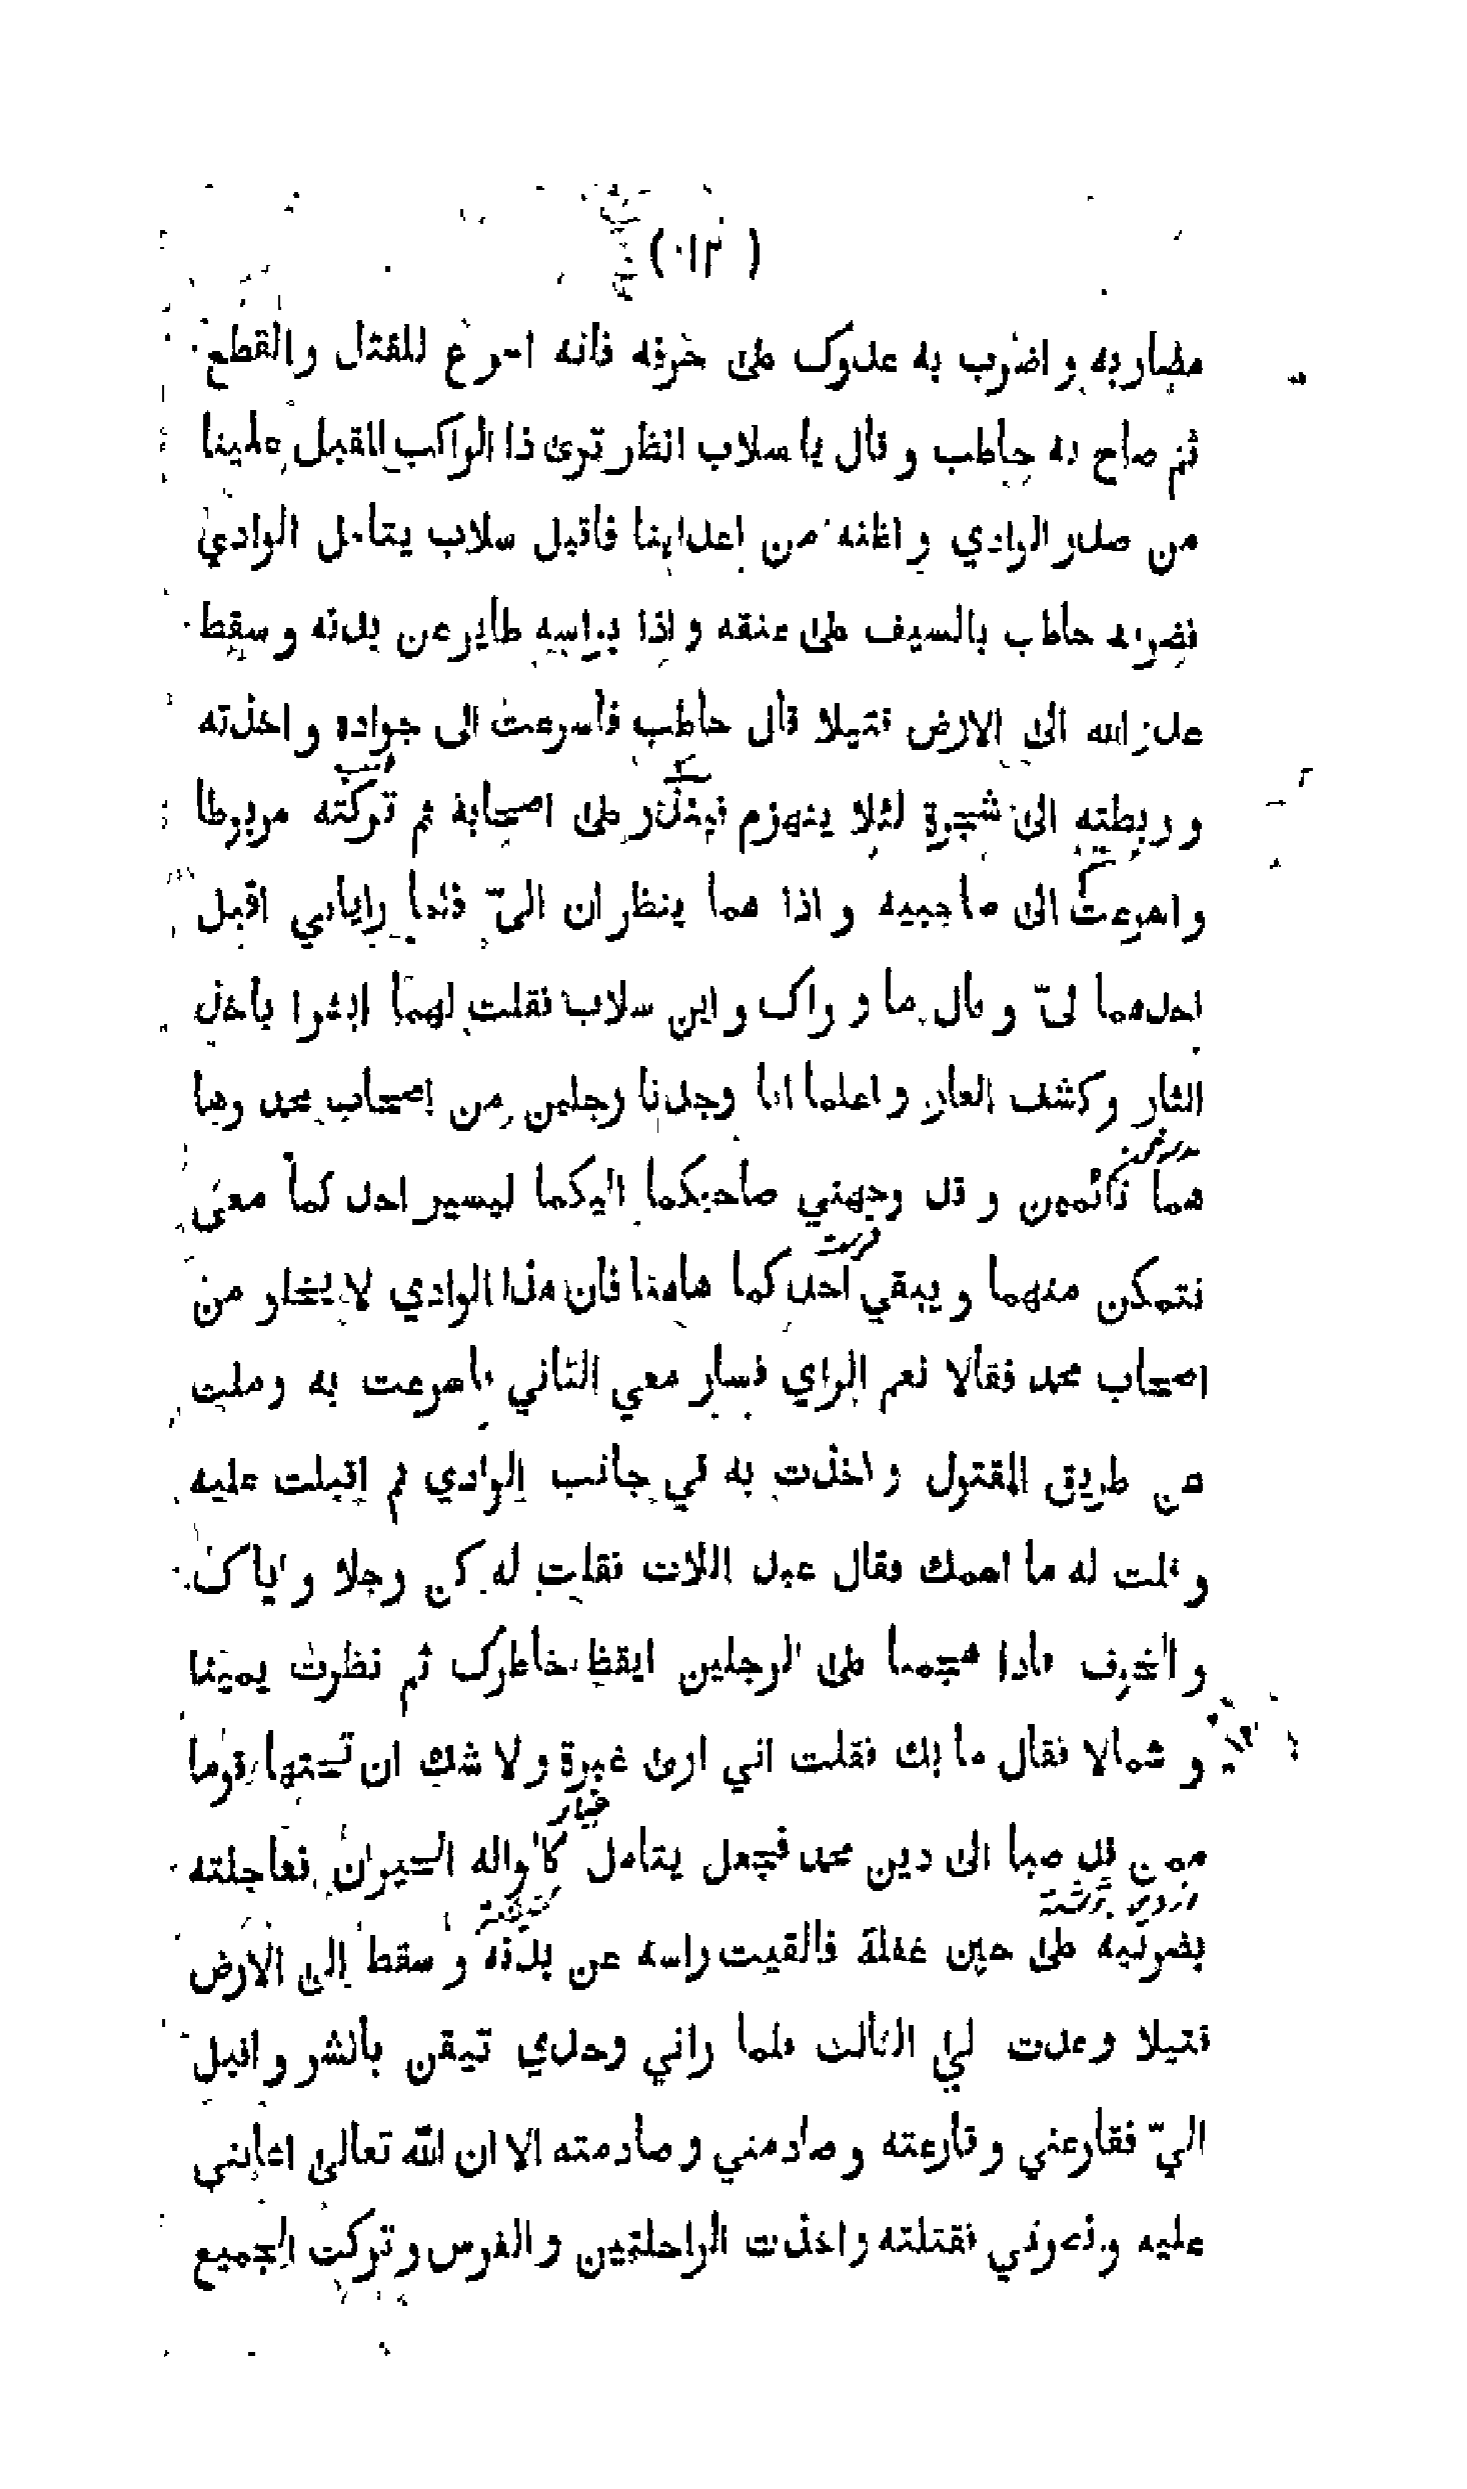 ( ٢١٠ )
مضاربه و اضرب به عدوك على حرفه فانه اسرع للقتل و القطع
ثم صاح به حاطب و قال يا سلاب انظر ترى ذا الراكب المقبل علينا
من صدر الوادي و اظنه من اعداينا فاقبل سلاب يتامل الوادي
فضربه حاطب بالسيف على عنقه و اذا براسه طاير عن بدنه و سقط
عدو الله الى الارض قتيلا قال حاطب فاسرعت الى جواده و اخذته
و ربطته الى شجرة لئلا ينهزم فينذر على اصحابة ثم تركته مربوطا
و اسرعت الى صاحبيه و اذا هما ينظران اليّ فلما راياني اقبل
احدهما ليّ و قال ما و راك و اين سلاب فقلت لهما ابشرا باخذ
الثار و كشف العار و اعلما انا وجدنا رجلين من اصحاب محمد وها
هما نائمين و قد وجهني صاحبكما اليكما ليسير احد كما معي
نتمكن منهما و يبقي احد كما هاهنا فان هذا الوادي لا يخلو من
اصحاب محمد فقالا نعم الراي فسار معي الثاني فاسرعت به وملت
عن طريق المقتول و اخذت به في جانب الوادي ثم اقبلت عليه
و قلت له ما اسمك فقال عبد اللات فقلت له كن رجلا و اياك
و الخوف فاذا هجمنا على الرجلين ايقظ خاطرك ثم نظرت يمينا
و شمالا فقال ما بك فقلت اني ارى غبرة و لا شك ان تحتها قوما
ممن قد صبا الى دين محمد فجعل يتامل كالواله الحيران فعاجلته
بضربيه على حين غفلة فالقيت راسه عن بدنه و سقط الى الارض
قتيلا و عدت لي الثالث فلما راني وحدي تيقن بالشر و اقبل
اليّ فقارعني و قارعته و صادمني و صادمته الا ان الله تعالى اعانني
عليه و نصرني فقتلته و اخذت الراحلتين و الفرس و تركت الجميع